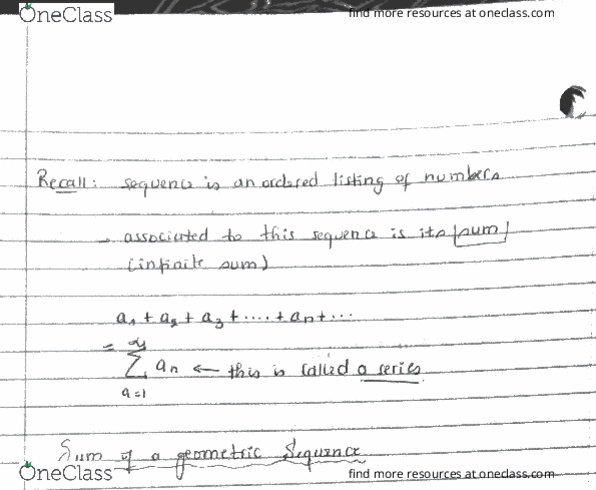 OneClass find more resources at oneclass.com
Recall: sequence is an ordered listing of numbers
→ associated to this sequence is its sum
(infinite sum)
a₁ + a₂ + a₃ + .... + an + ...
= ∞
∑ an ← this is called a series
a=1
Sum of a geometric Sequence
OneClass find more resources at oneclass.com